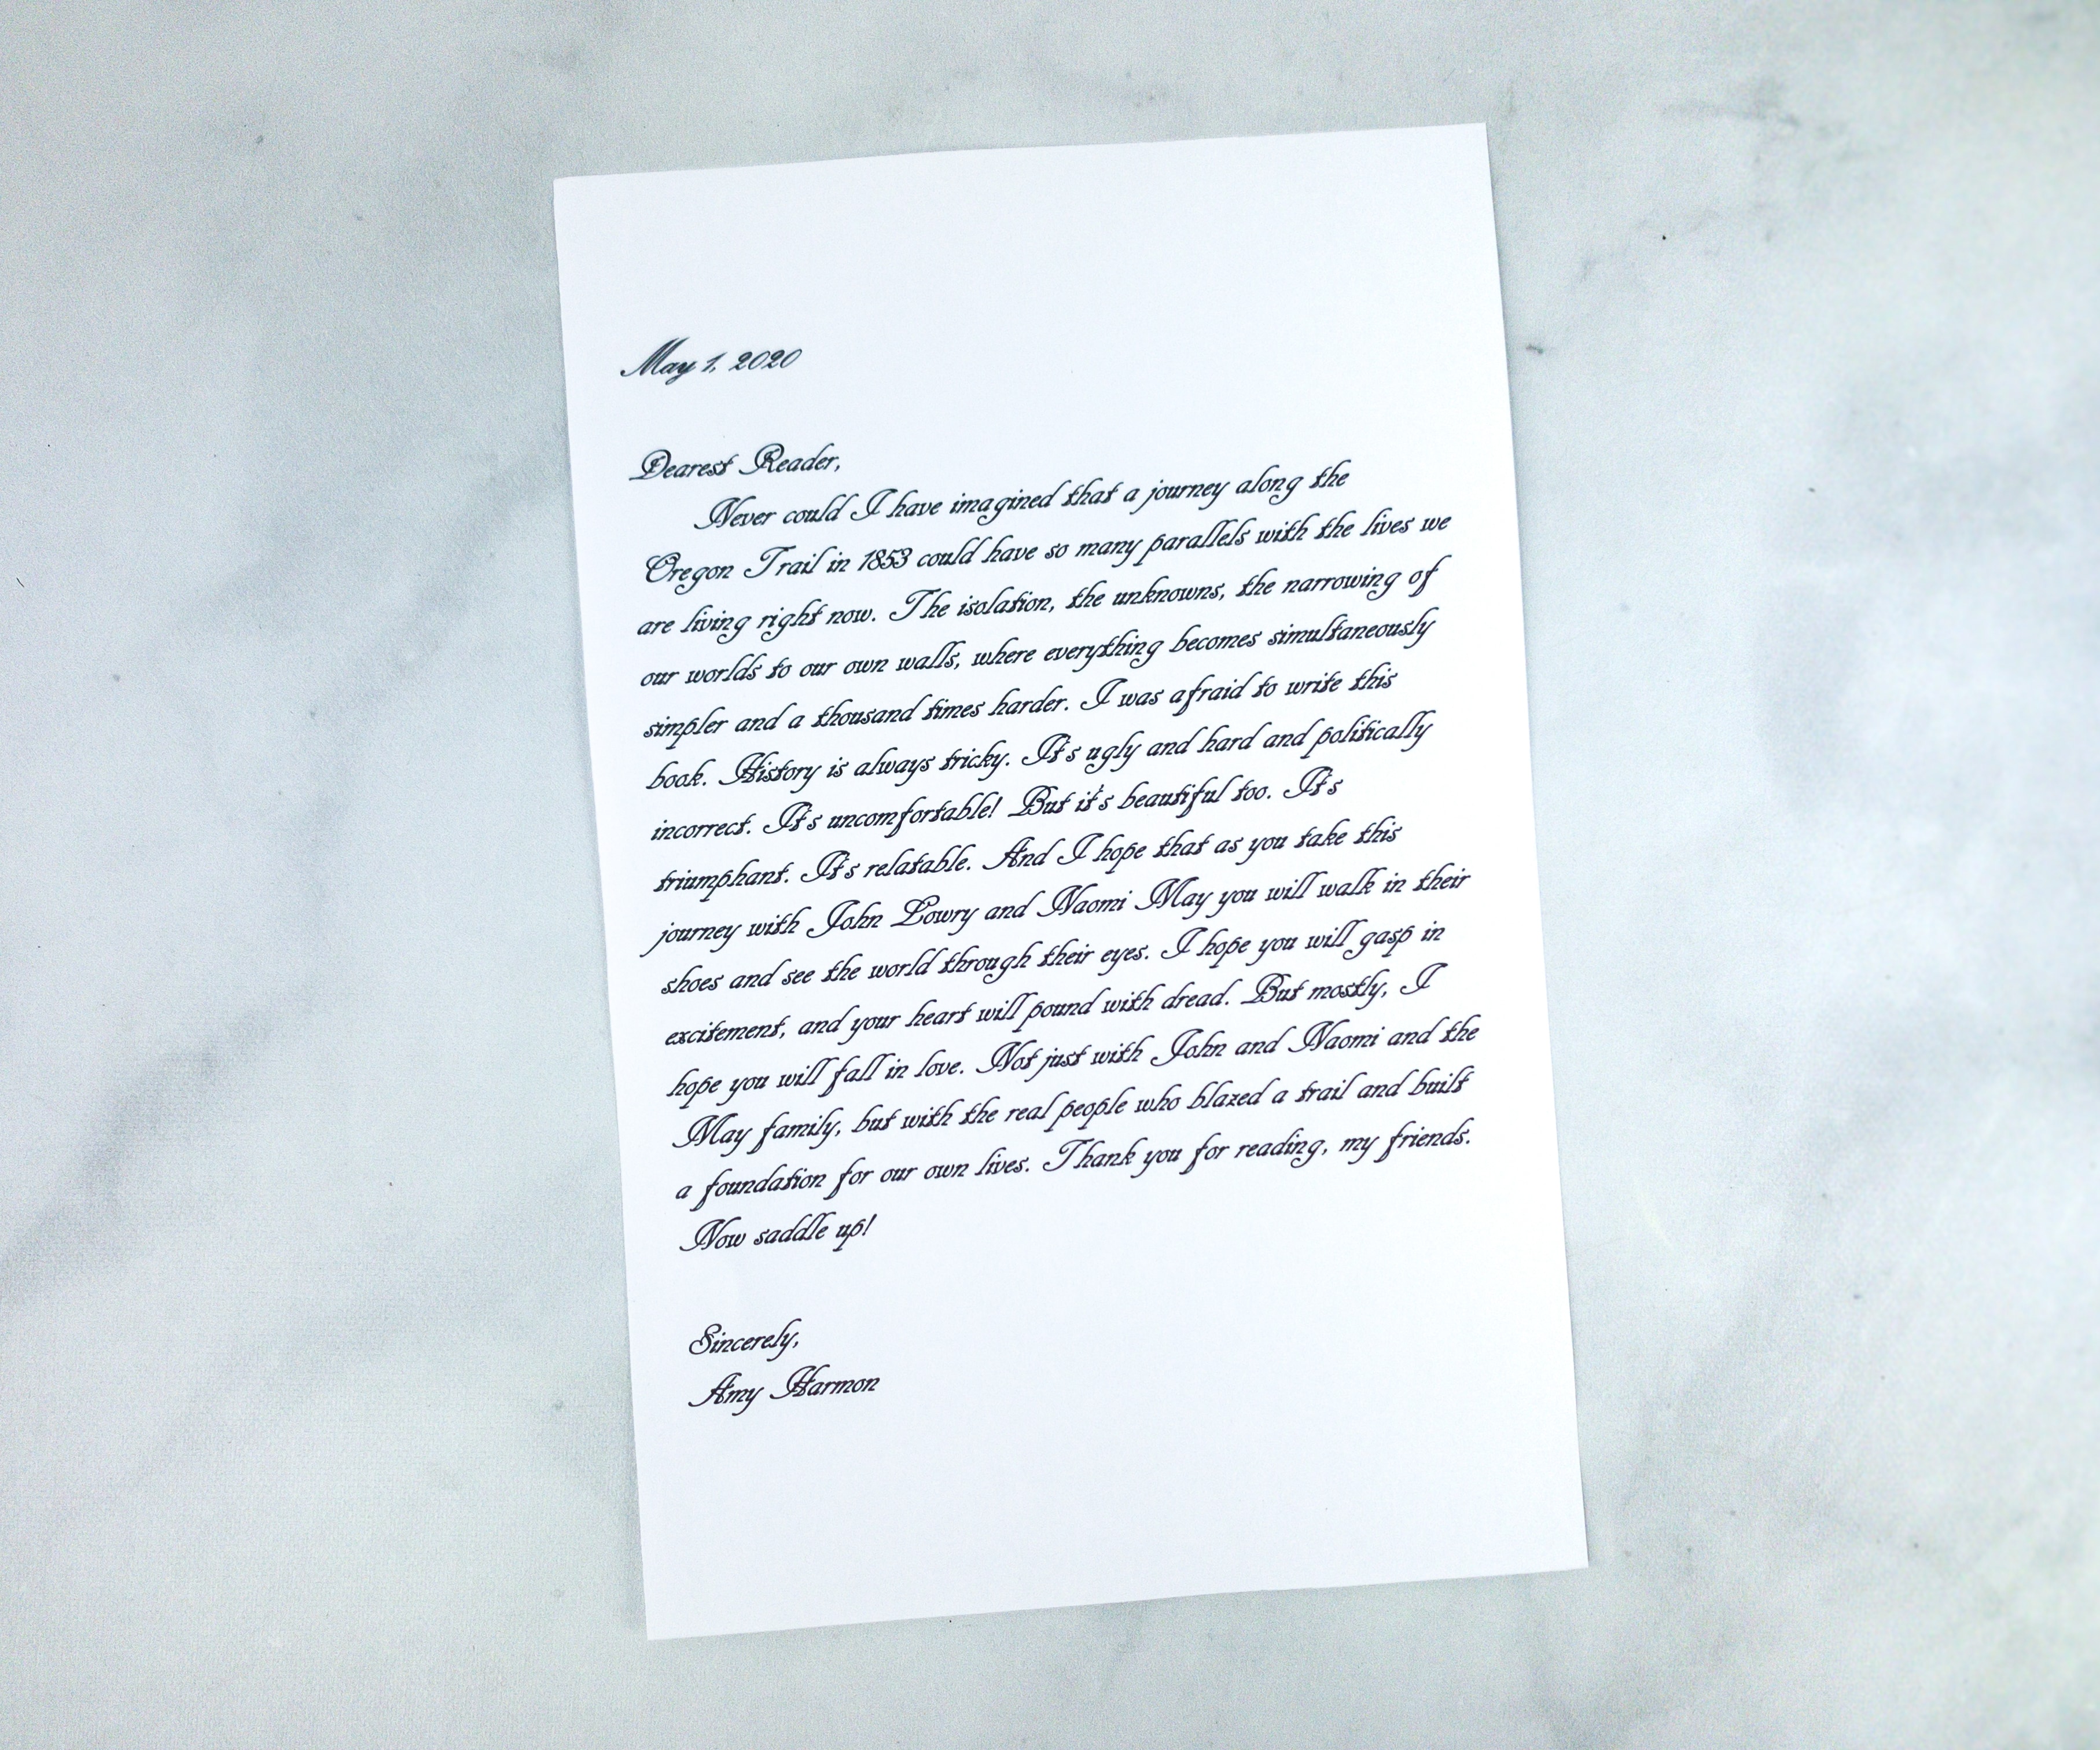 May 1, 2020
Dearest Reader,
Never could I have imagined that a journey along the
Oregon Trail in 1853 could have so many parallels with the lives we
are living right now. The isolation, the unknowns, the narrowing of
our worlds to our own walls, where everything becomes simultaneously
simpler and a thousand times harder. I was afraid to write this
book. History is always tricky. It's ugly and hard and politically
incorrect. It's uncomfortable! But it's beautiful too. It's
triumphant. It's relatable. And I hope that as you take this
journey with John Lowry and Naomi May you will walk in their
shoes and see the world through their eyes. I hope you will gasp in
excitement, and your heart will pound with dread. But mostly, I
hope you will fall in love. Not just with John and Naomi and the
May family, but with the real people who blazed a trail and built
a foundation for our own lives. Thank you for reading, my friends.
Now saddle up!
Sincerely,
Amy Harmon